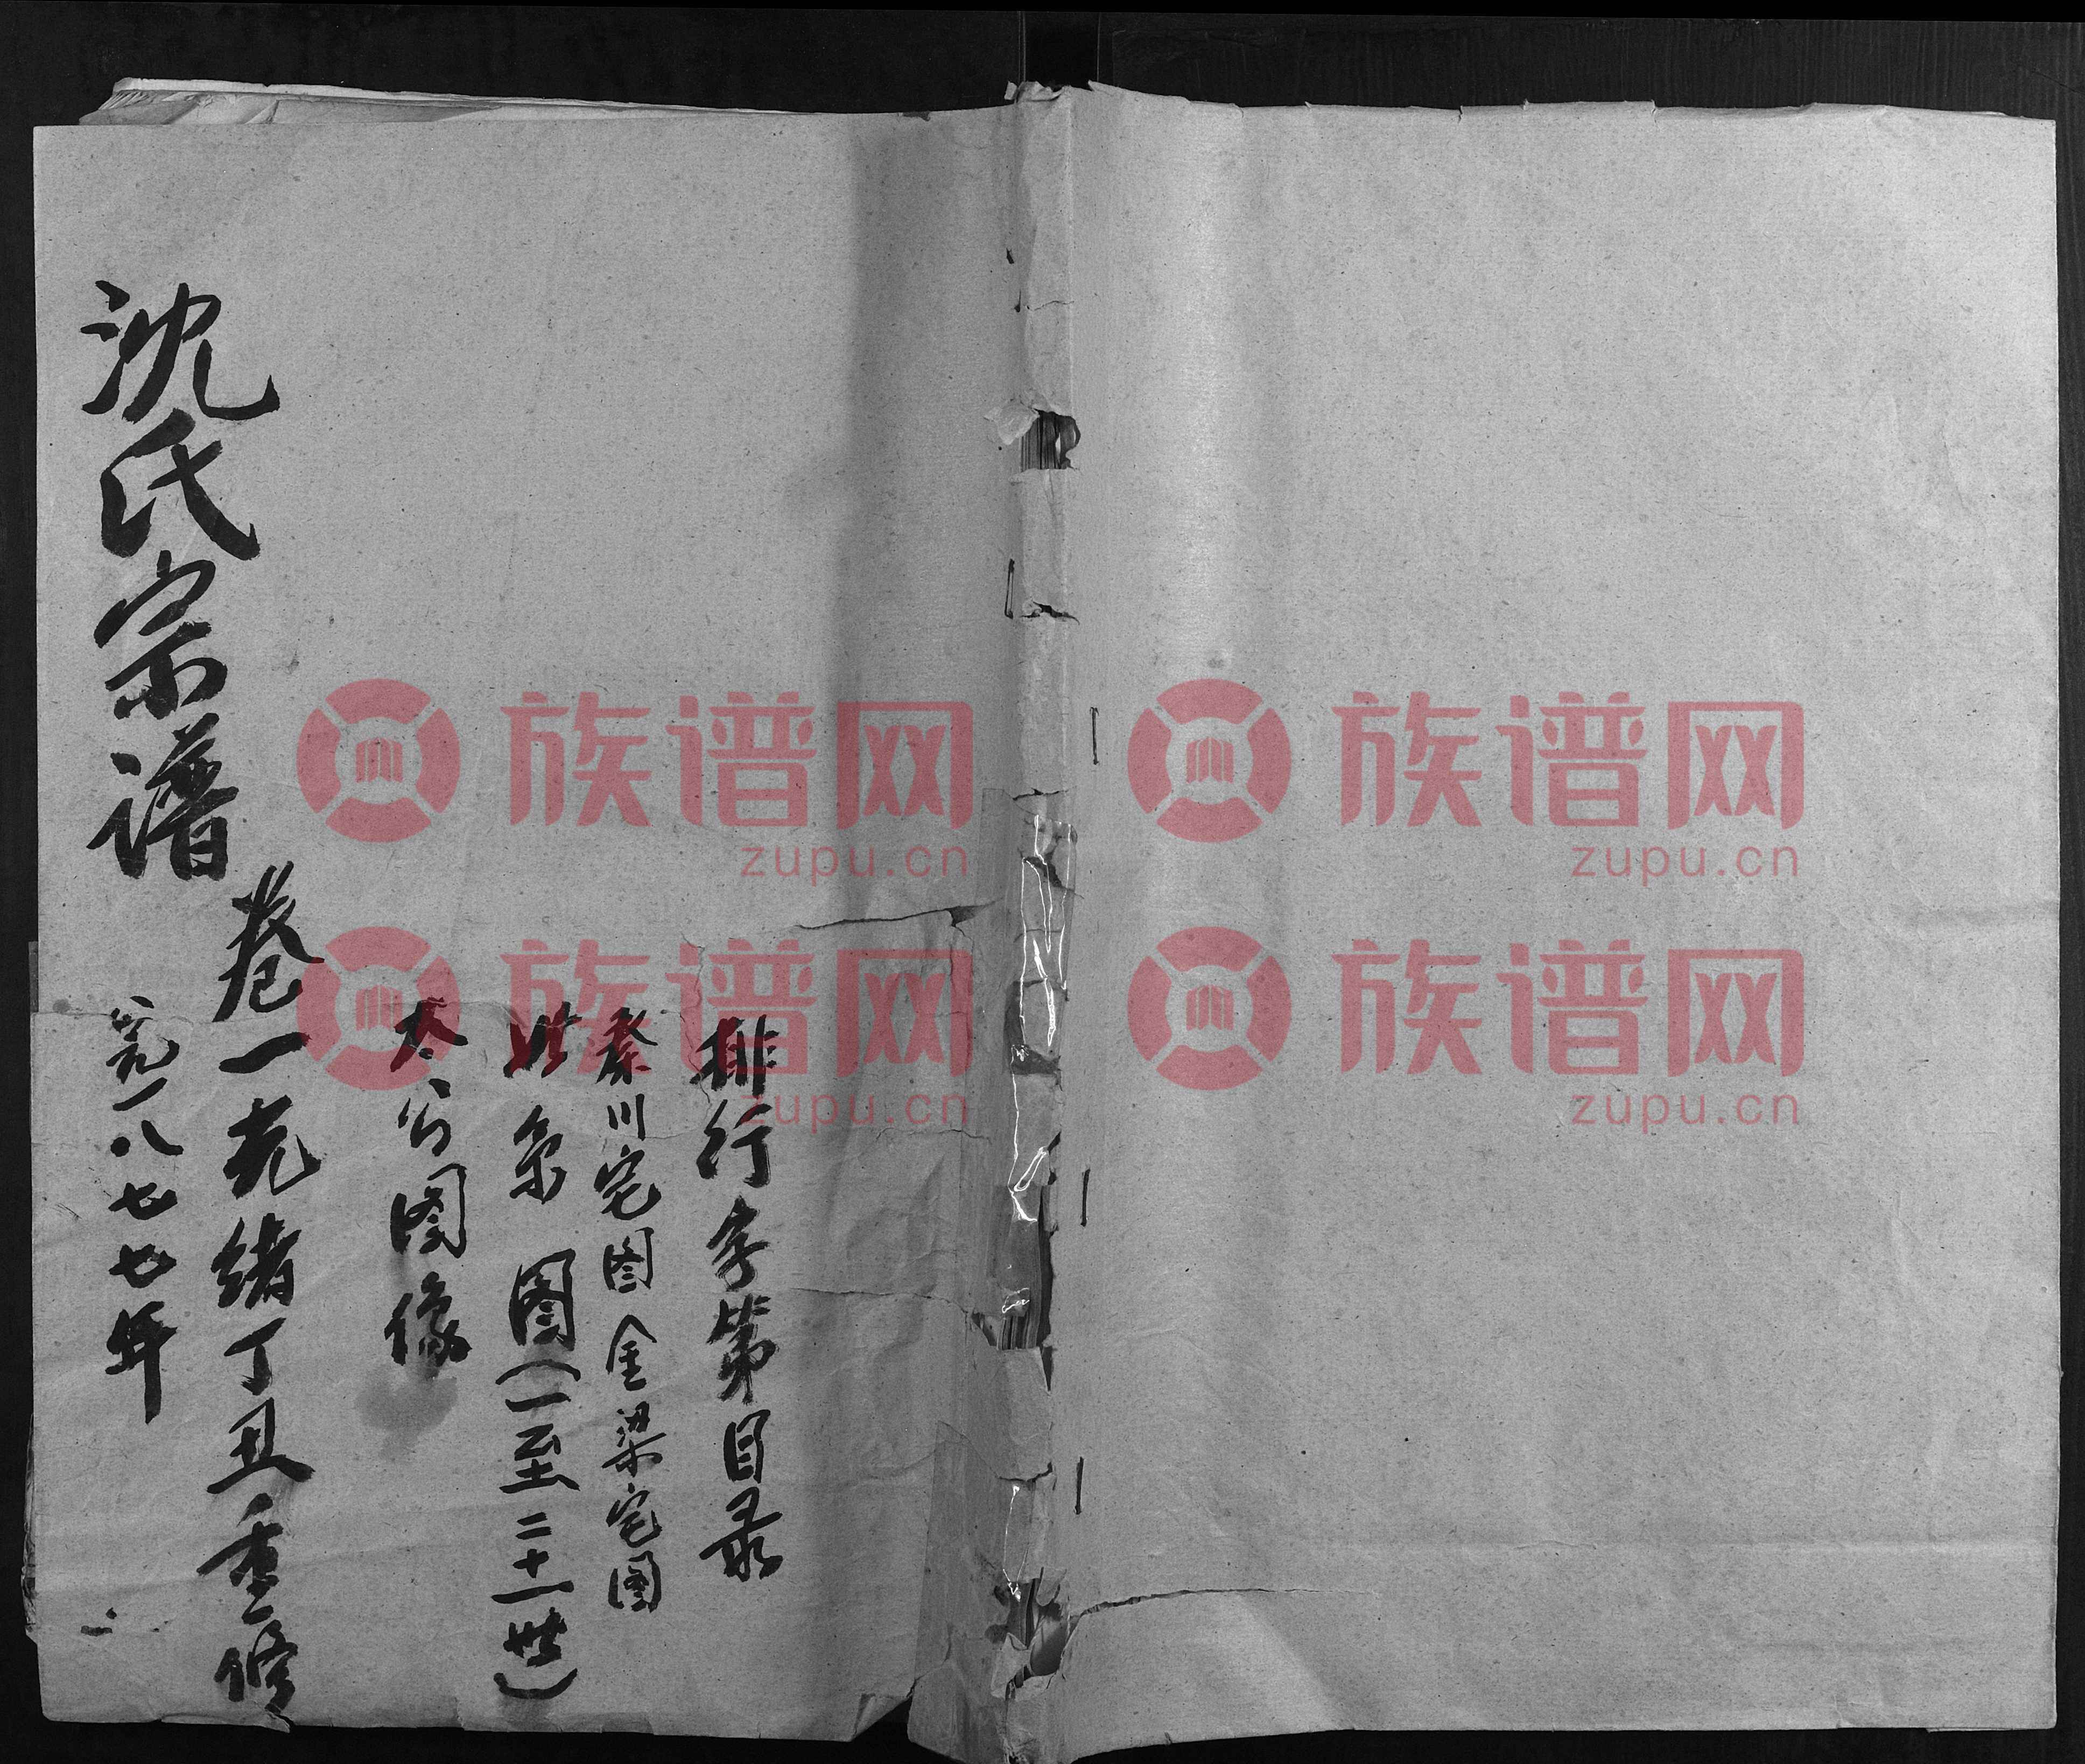 排行字第目录
秦川宅图金梁宅图
世系图(一至二十一世)
太公图像
卷一光绪丁丑重修
沈氏宗谱
公元一八七七年
族谱网
zupu.cn
族谱网
zupu.cn
族谱网
zupu.cn
族谱网
zupu.cn